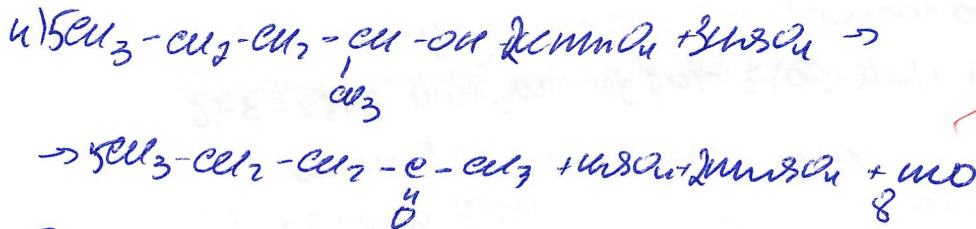 4) 5CH₃-CH₂-CH₂-CH-OH + 2KMnO₄ + 3H₂SO₄ →
CH₃
→ 5CH₃-CH₂-CH₂-C-CH₃ + K₂SO₄ + 2MnSO₄ + 8H₂O
O